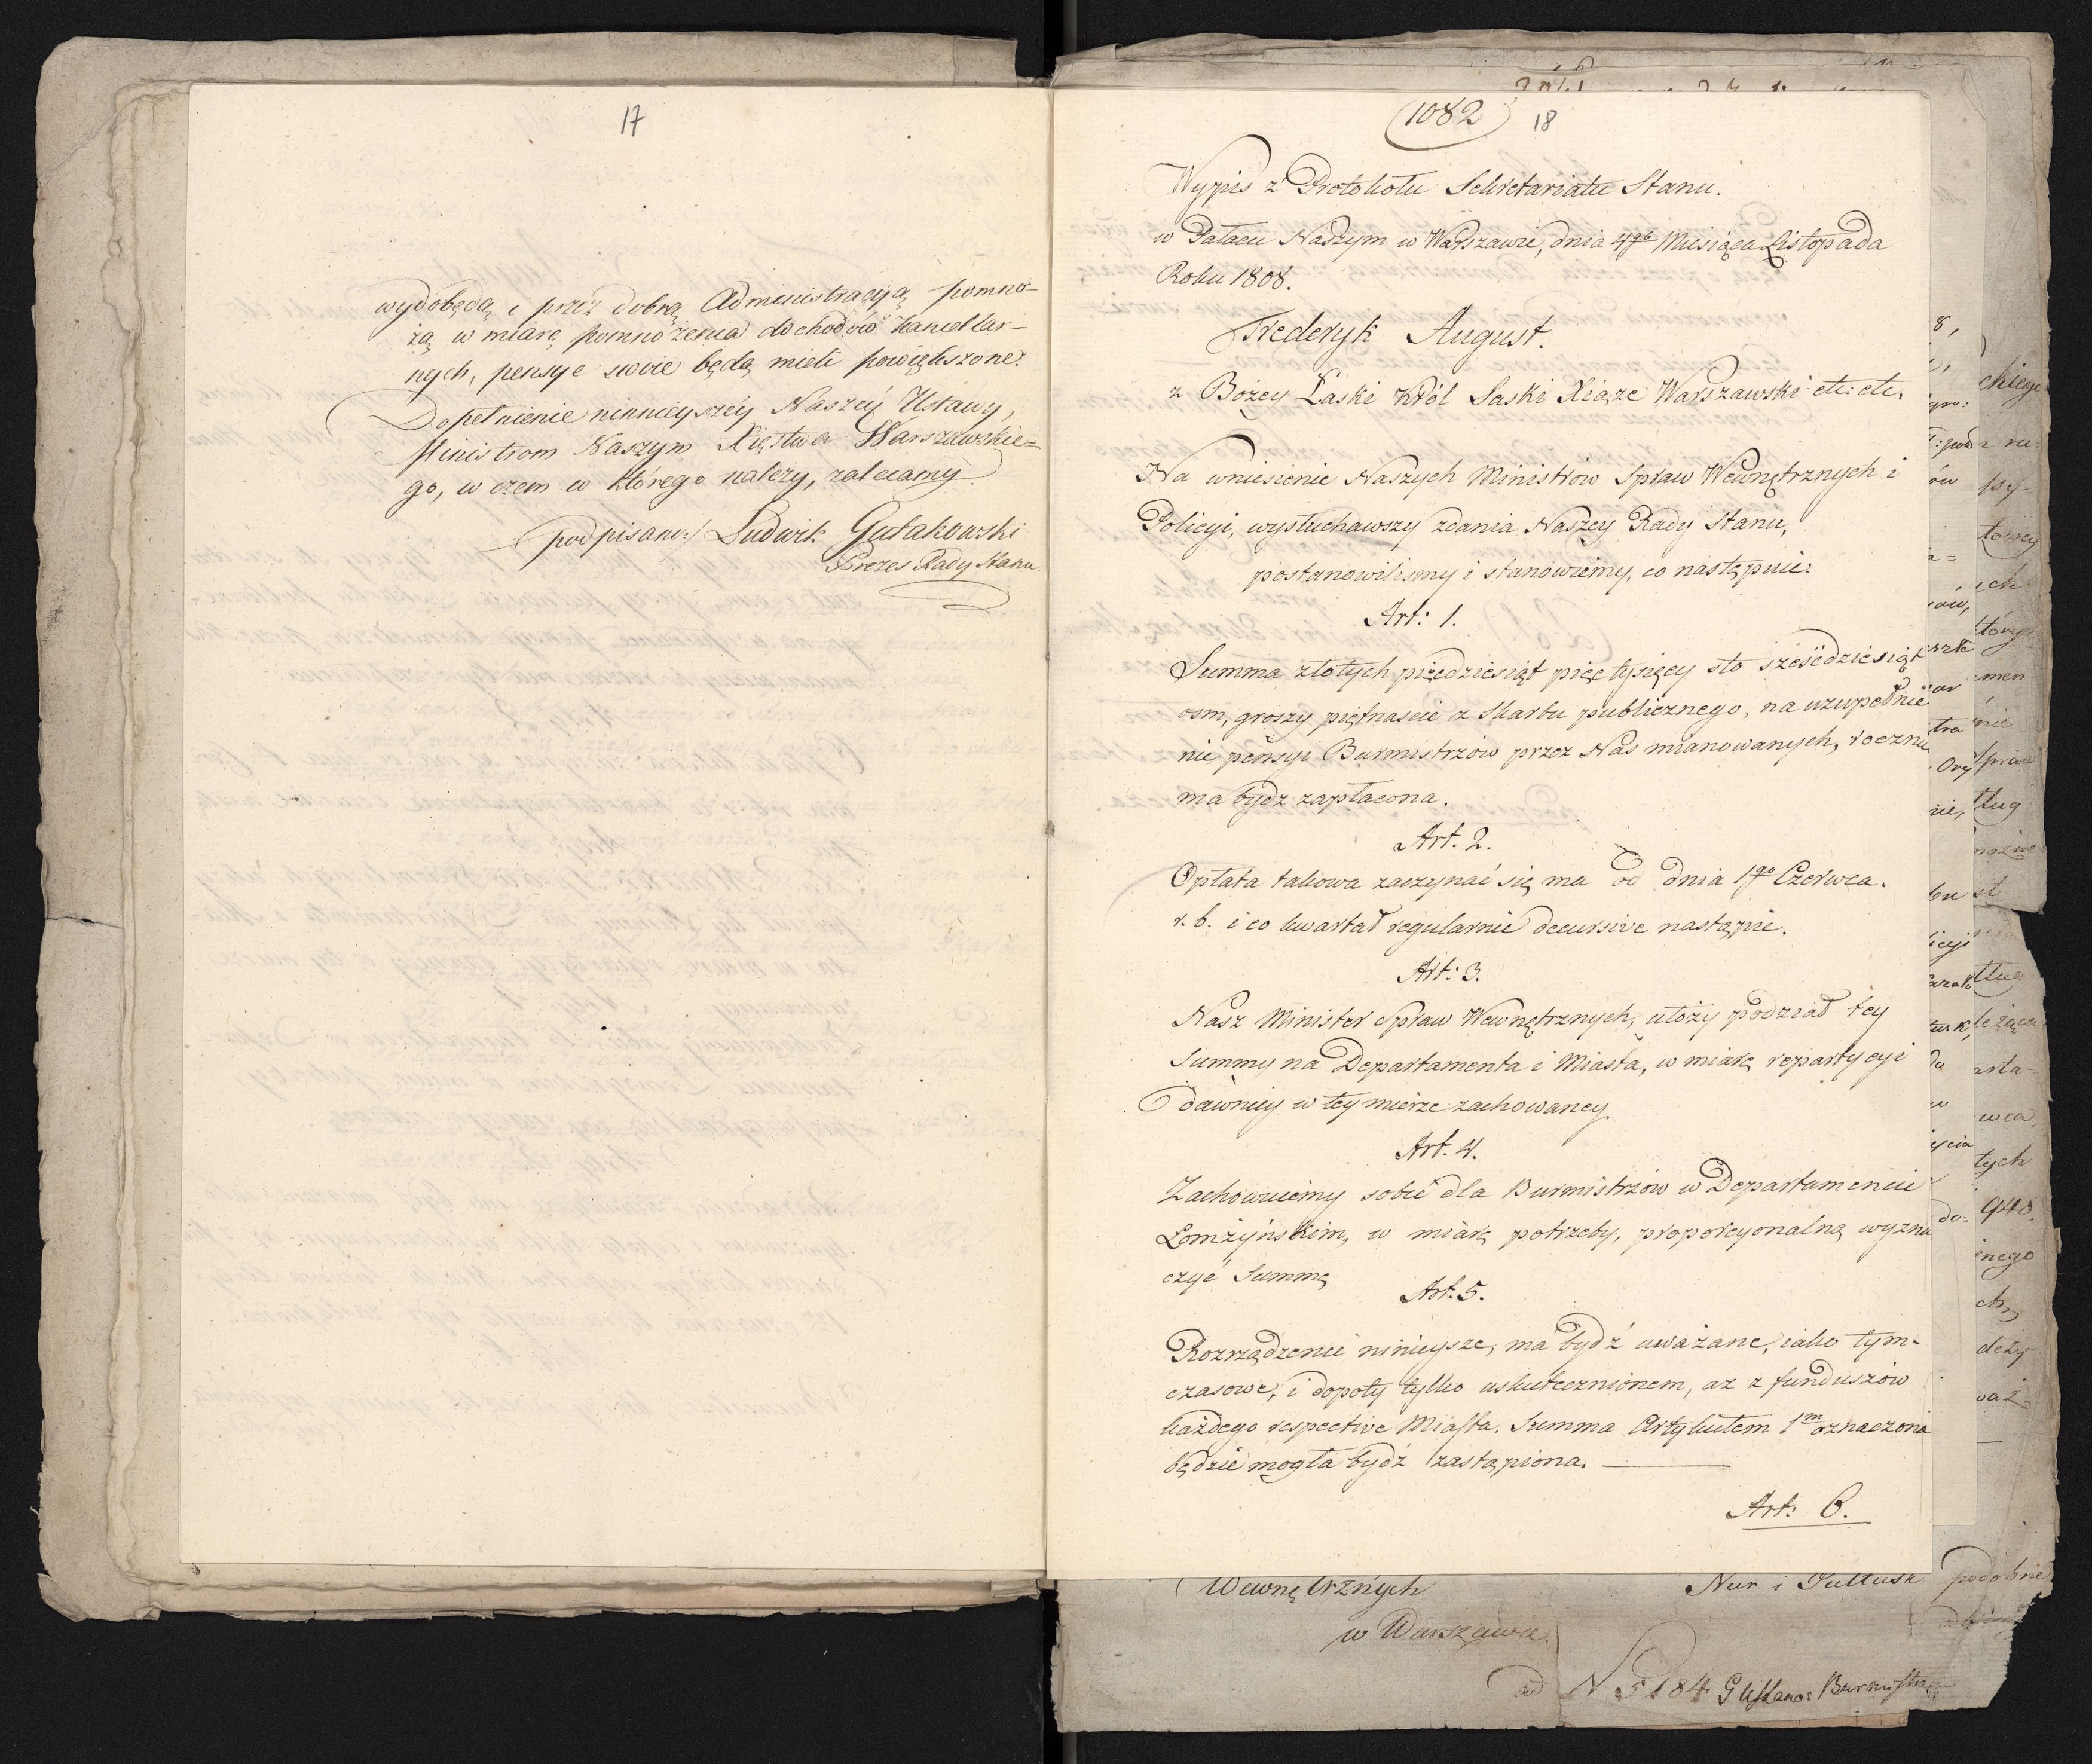 17
wydobędą i przez dobrą Administracyją pomno-
żą w miarę pomnożenia dochodów kamellar-
nych, pensye swoie będą mieli powiększone.
Dopełnienie ninnieyszéy Naszéy Ustawy,
Ministrom Naszym Xięstwa Warszawskie=
go, w czem co którego należy, zalecamy.
podpisano:/ Ludwik Gutakowski
Prezes Rady Stanu
1082
18
Wypis z Protokołu Sekretariatu Stanu.
w Pałacu Naszym w Warszawie, dnia 4go Miesiąca Listopada
Roku 1808.
Frederyk August.
z Bożey Łaski Król Saski Xiąże Warszawski etc: etc.
Na wniesienie Naszych Ministrów Spraw Wewnętrznych i
Policyi, wysłuchawszy zdania Naszey Rady Stanu,
postanowiliśmy i stanowiemy, co następuie:
Art: 1.
Summa złotych pięćdziesiąt pięć tysięcy sto sześćdziesiąt
osm, groszy piętnaście z Skarbu publicznego, na uzupełnie
nie pensyi Burmistrzów przez Nas mianowanych, rocznie
ma bydz zapłacona.
Art. 2.
Opłata takowa zaczynać się ma od dnia 1go Czerwca.
r. b. i co kwartał regularnie decursive nastąpie.
Art: 3.
Nasz Minister Spraw Wewnętrznych, ułoży podział tey
Summy na Departamenta i Miasta, w miarę repartycyi
dawniey w tey mierze zachowaney
Art. 4.
Zachowuiemy sobie dla Burmistrzów w Departamencie
Łomżyńskim, w miarę potrzeby, proporcyonalną wyzna
czyć Summę
Art. 5.
Rozrządzenie ninieysze, ma bydź uważane, iako tym-
czasowe, i dopoty tylko uskutecznionem, aż z funduszów
każdego respective Miasta. Summa Artykułem 1m oznaczona
będzie mogła bydź zastąpiona.
Art: 6.
Wewnętrznych
w Warszawie.
Nur i Pułtusk
podobnie
ad N 5184 G